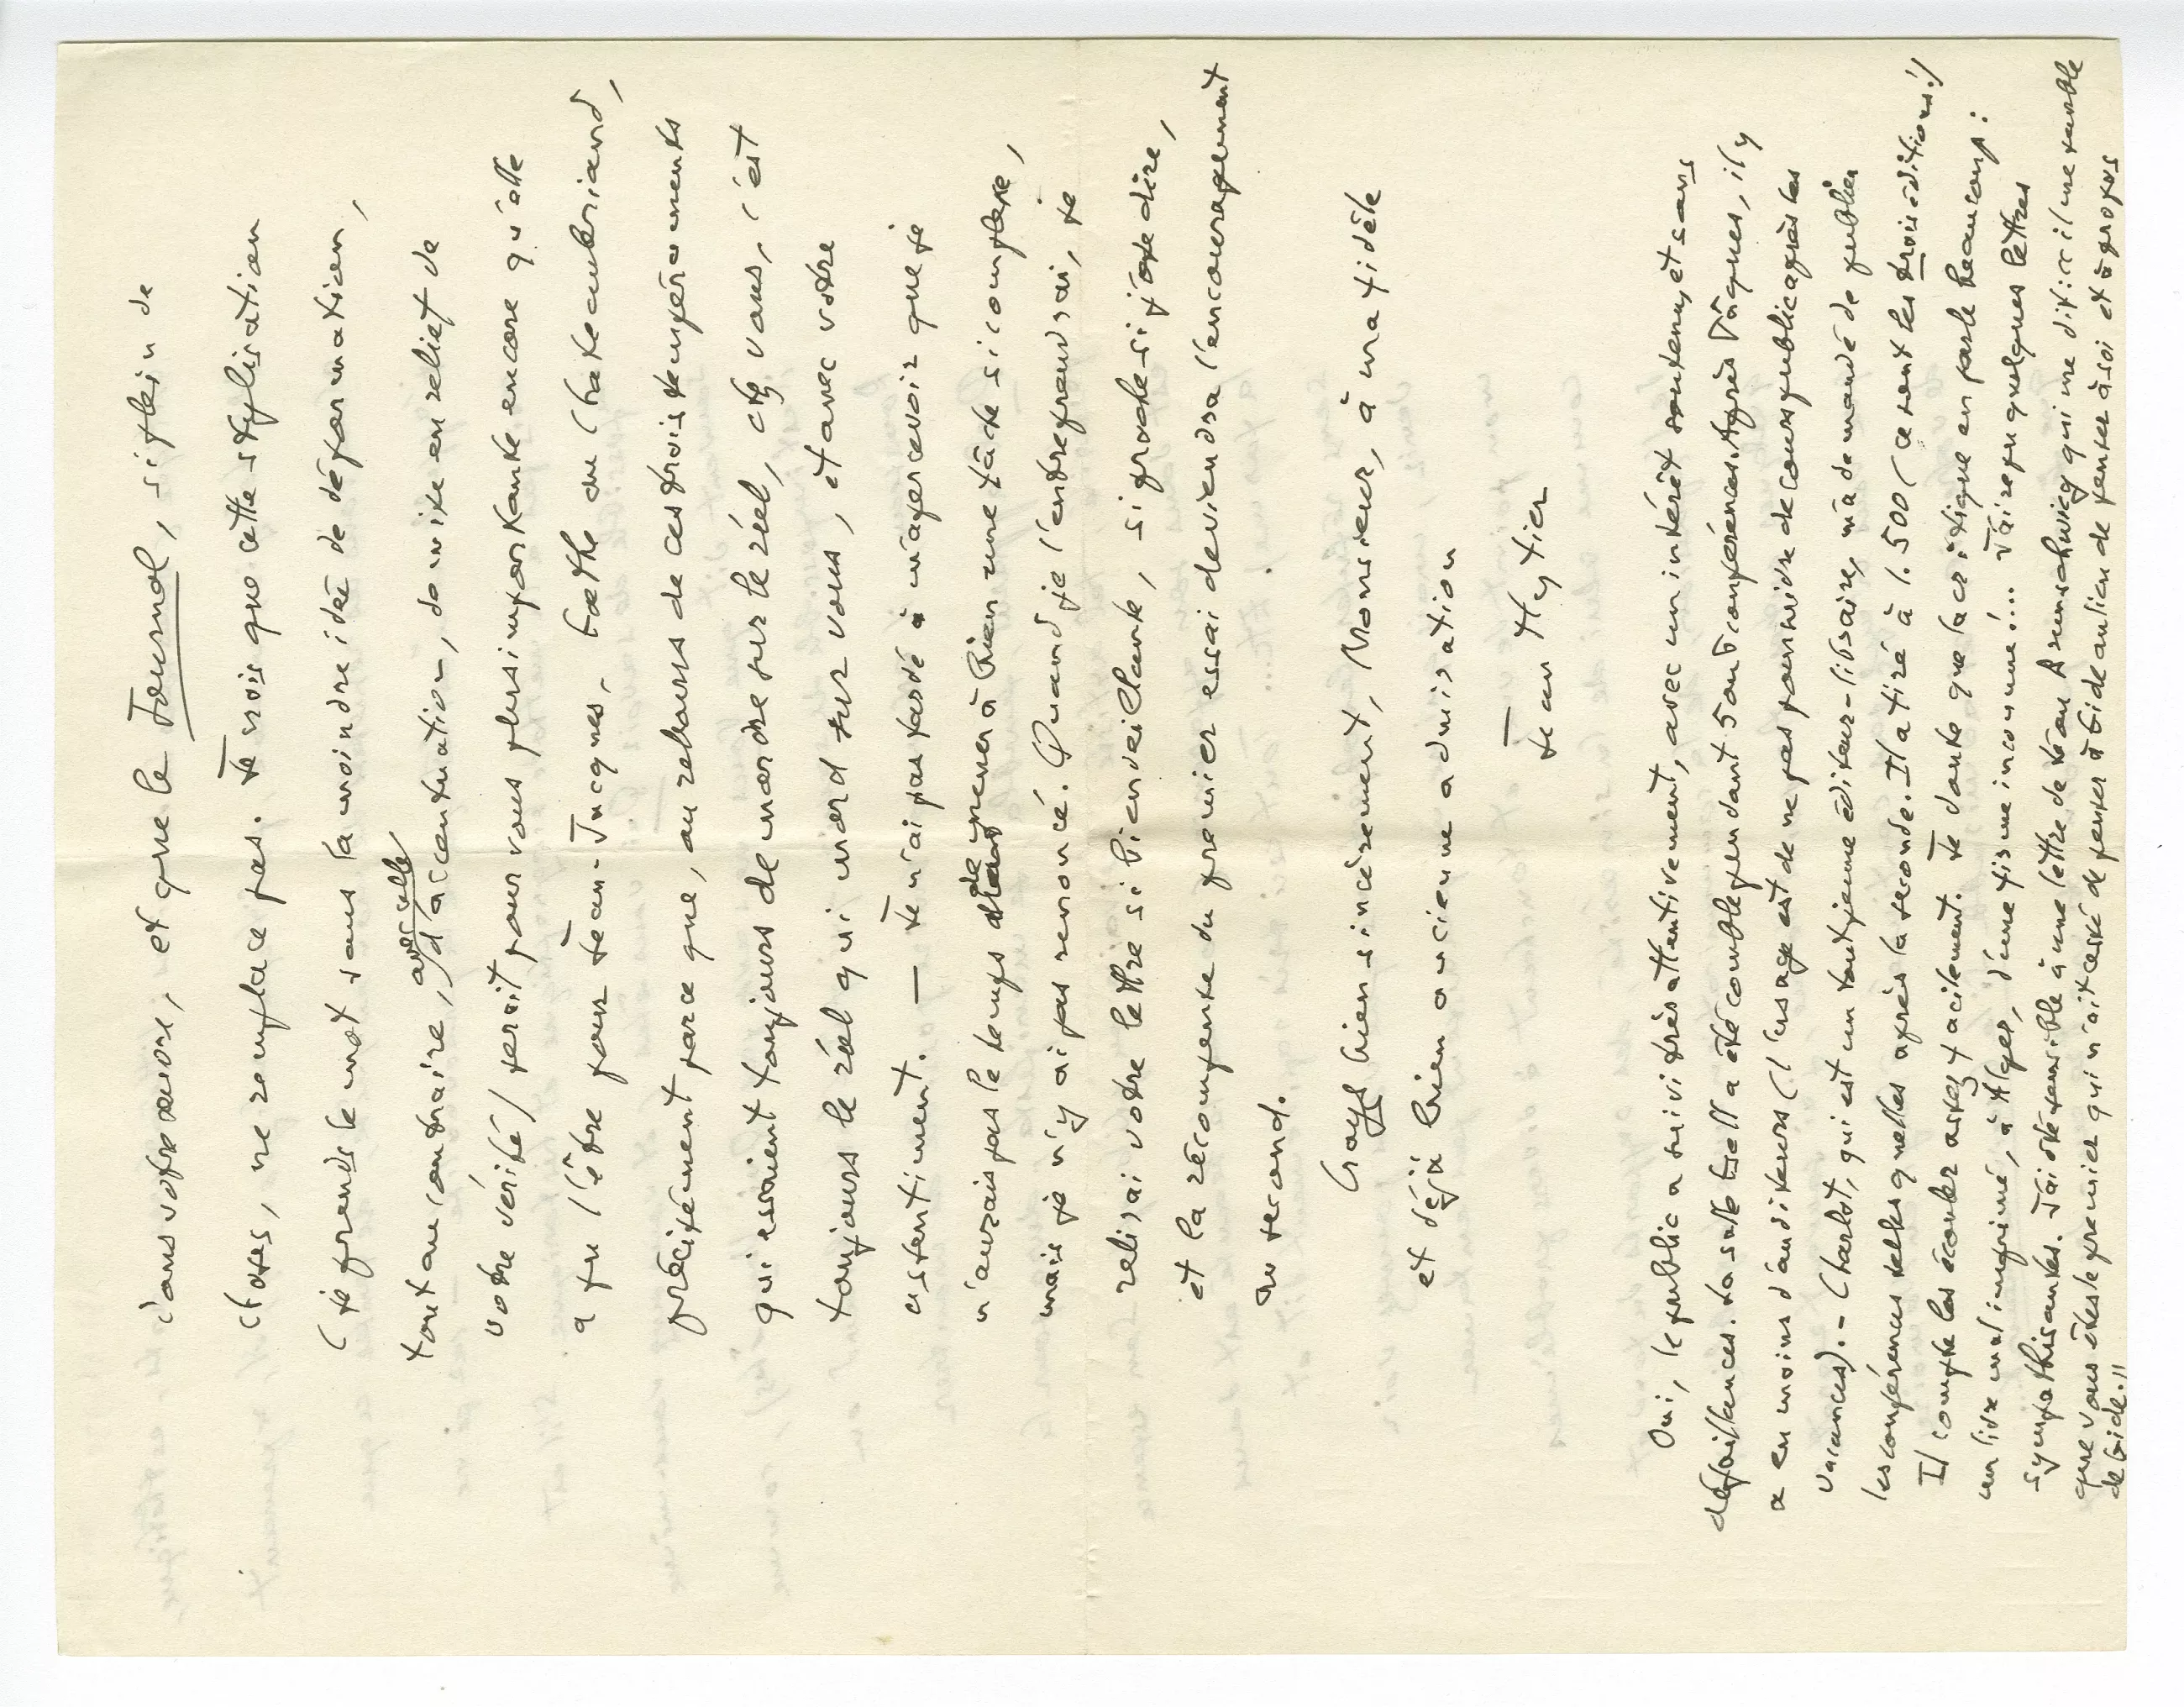 dans votre œuvre, et que le Journal, si plein de
choses, ne remplace pas. Je crois que cette stylisation
(je prends le mot sans la moindre idée de déformation,
tout au contraire, avec celle d'accentuation, de mise en relief de
votre vérité) serait pour vous plus importante encore qu'elle
a pu l'être pour Jean-Jacques, Gœthe ou Chateaubriand,
précisément parce que, au rebours de ces trois tempéraments
qui essaient toujours de mordre sur le réel, chez vous, c'est
toujours le réel qui mord sur vous, et avec votre
assentiment. — Je n'ai pas tardé à m'apercevoir que je
n'aurais pas le temps de mener à bien une tâche si complexe,
mais je n'y ai pas renoncé. Quand je l'entreprendrai, je
relirai votre lettre si bienveillante, si proche si j'ose dire,
et la récompense du premier essai deviendra l'encouragement
au second.
Croyez bien sincèrement, Monsieur, à ma fidèle
et déjà bien ancienne admiration
Jean Hytier
Oui, le public a suivi très attentivement, avec un intérêt soutenu, et sans
défaillances. La salle a été comble pendant 5 ou 6 conférences. Après Pâques, il y
a eu moins d'auditeurs (l'usage est de ne pas poursuivre de cours publics après les
vacances). – Charlot, qui est un tout jeune éditeur-libraire, m'a demandé de publier
les conférences telles quelles après la seconde. Il a tiré à 1.500 (ce sont les trois éditions!)
Il compte les écouler assez facilement. Je doute que la critique en parle beaucoup:
un livre mal imprimé, à Alger, d'une firme inconnue!... J'ai reçu quelques lettres
sympathisantes. J'ai été sensible à une lettre de Jean Prévost qui me dit: "il me semble
que vous êtes le premier qui n'ait cessé de penser à Gide au lieu de penser à soi et à propos
de Gide."